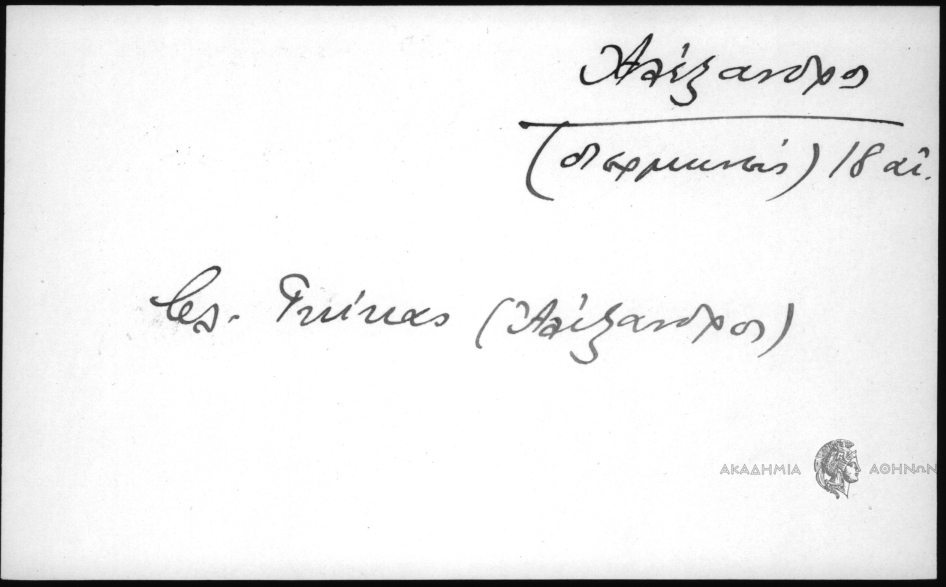 Ἀλέξανδρος
(διερμηνεύς) 18 αἰ.
Βλ. Γκίκας (Ἀλέξανδρος)
ΑΚΑΔΗΜΙΑ ΑΘΗΝΩΝ